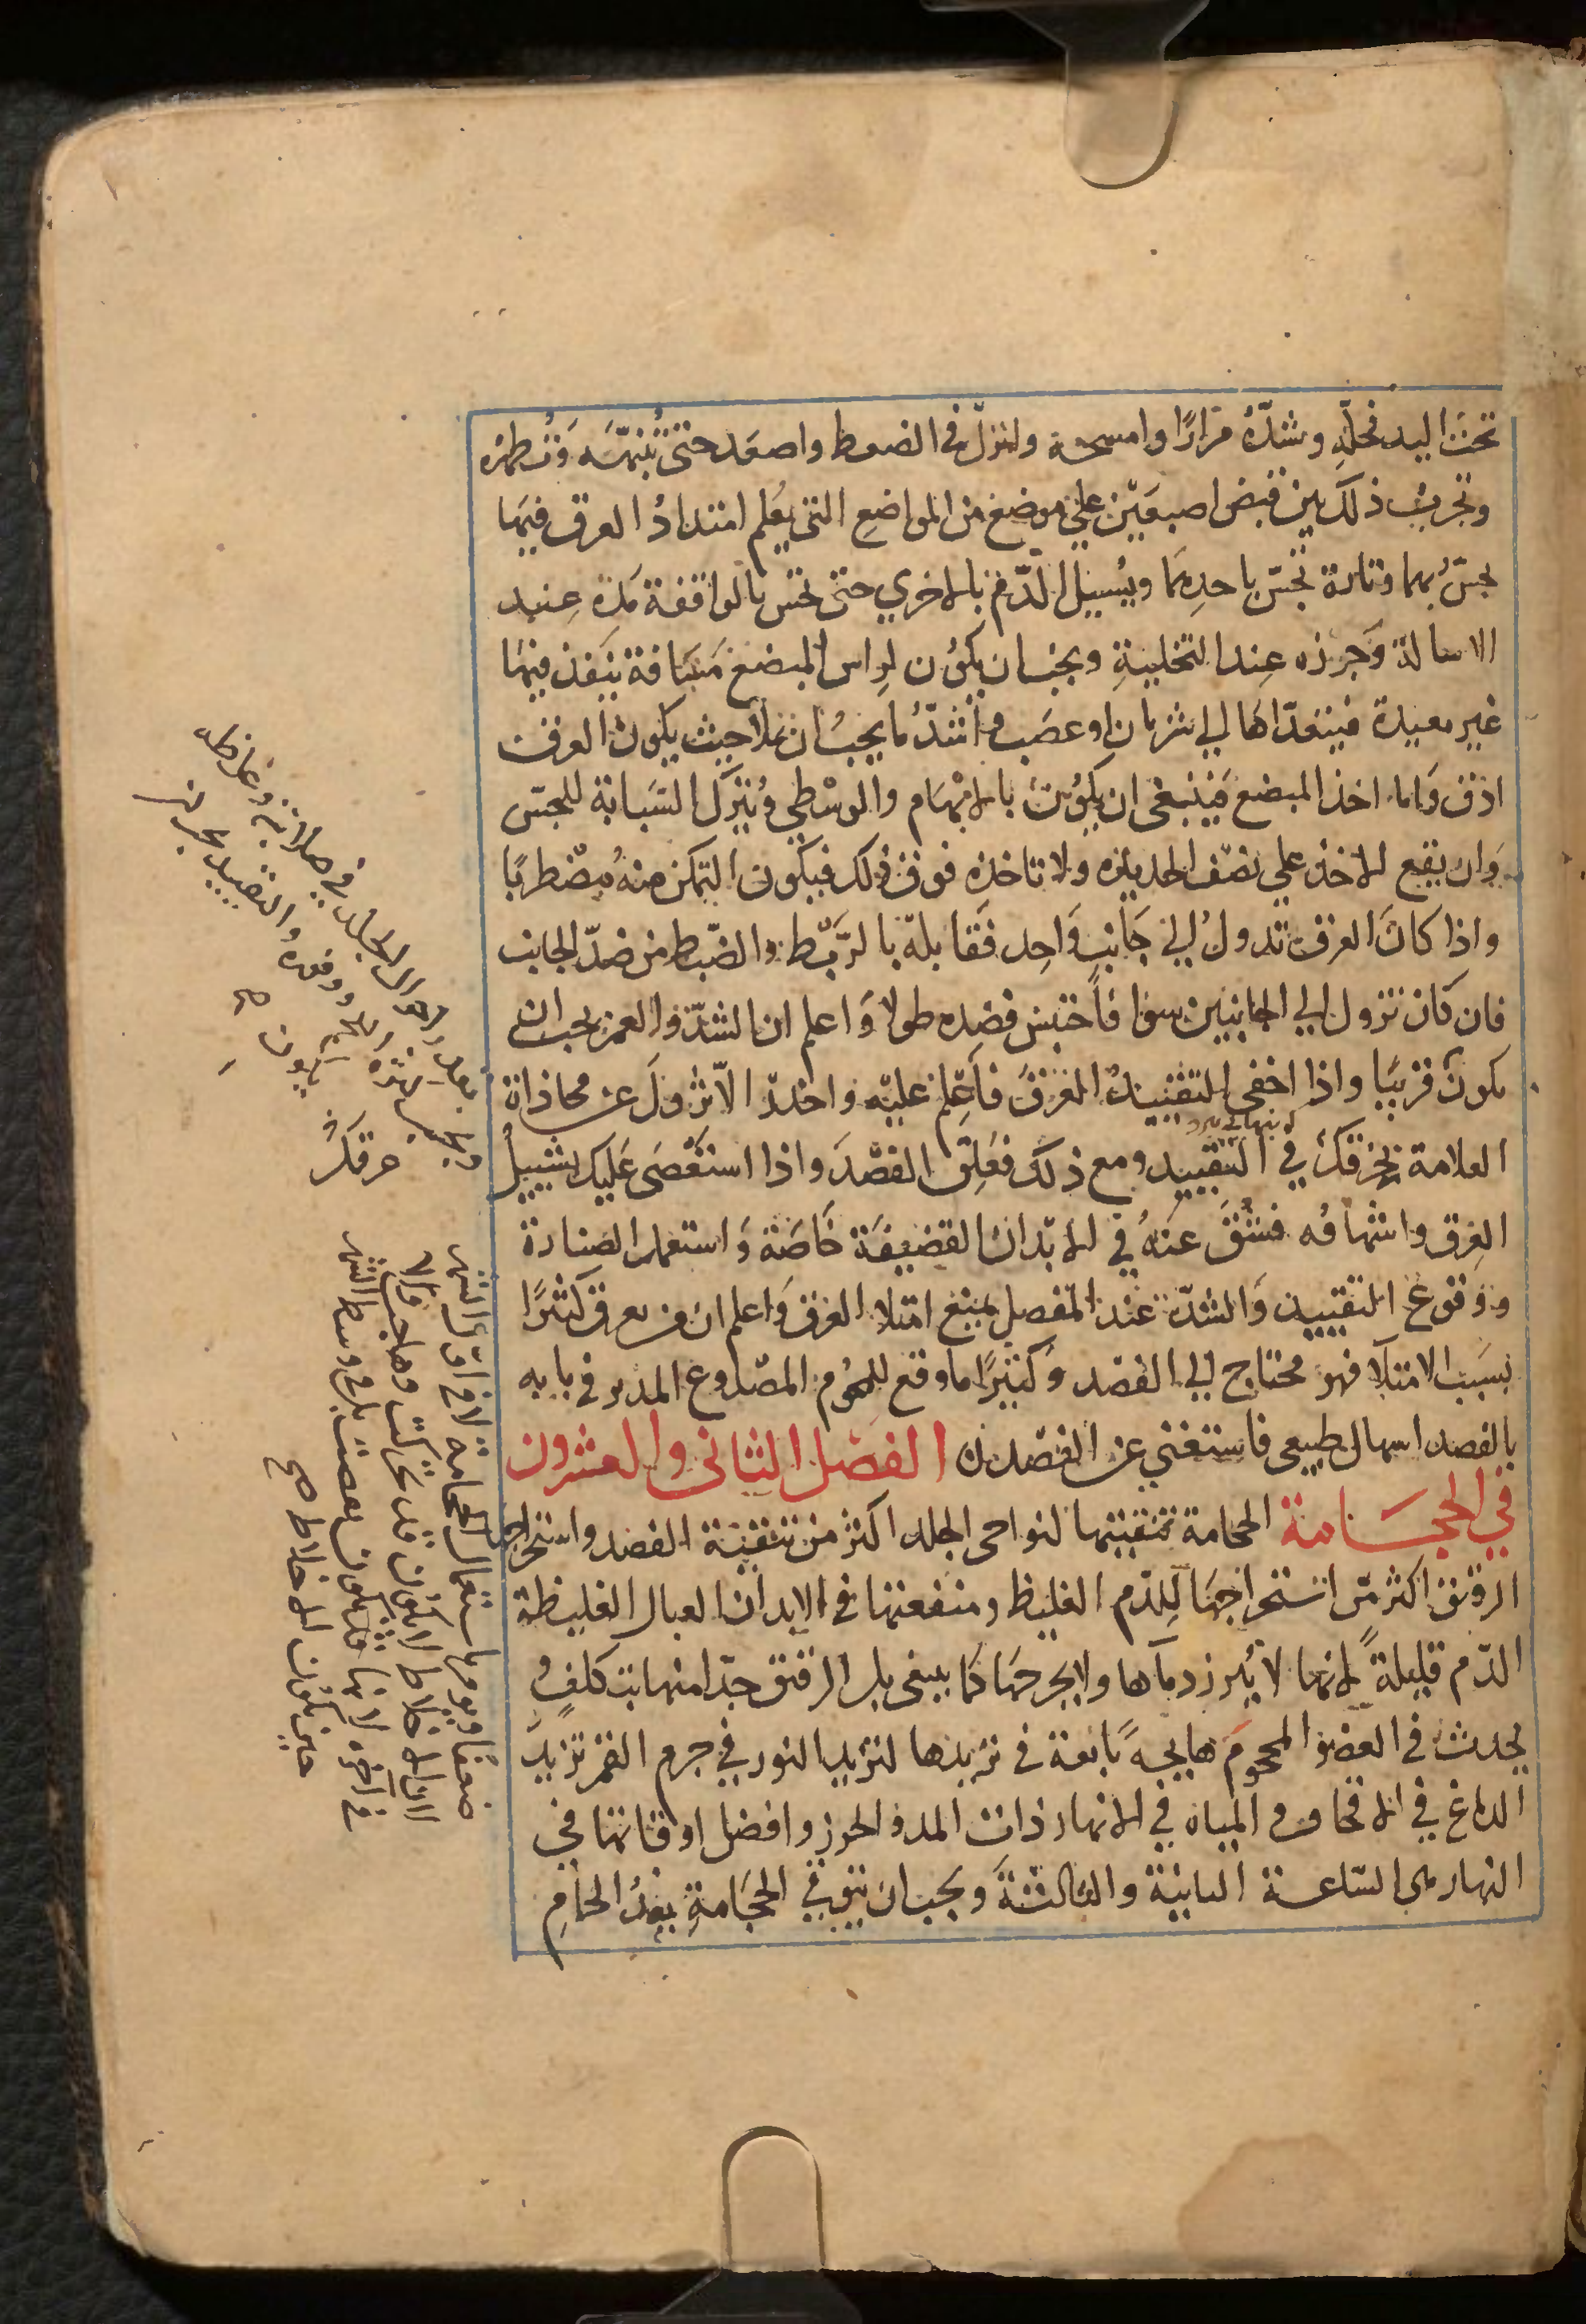 تحت اليد فحلّه وشدّه مرارًا وامسحه وانزل في الضغط واصعد حتى تنبّهه وتظهره
وتجرب ذلك بين قبض اصبعين على موضع من المواضع التي يعلم امتداد العرق فيها
بحبس بهما وتارة تحبس باحديهما ويسيل الدم بالاخري حتى تحس بالواقفة مدة عند
الاسالة وجرزه عند التخلية ويجب ان يكون لراس المبضع مسافة ينفذ فيها
غير بعيدة فيتعداها الي شريان او عصب واشد ما يجب ان يملا حيث يكون العرق
ادق واما اخذ المبضع فينبغي ان يكون بالابهام والوسطي ونترك السبابة للجس
وان يقع الاخذ علي نصف الحديدة ولا تاخذه فوق ذلك فيكون التمكن منه مضطربا
واذا كان العرق تدول الي جانب واحد فقابله بالربط والضبط من ضد الجانب
فان كان تزول الي الجانبين سوا فاجتنب فصده طولا واعلم ان الشد والغمز يجب ان
يكون قريبا واذا اخفي التقييد العرق فاعلم عليه واحذر الا تزول عن محاذاة
العلامة بخرقك في التقييد ومع ذلك فعلق الفصد واذا استعصى عليك بسبيل
العرق واشهافه فشق عنه في الابدان القضيفة خاصة واستعمل الصنارة
ووقوع التقييد والشد عند المفصل يمنع امتلا العرق واعلم ان من يعرق كثيرا
بسبب الامتلا فهو محتاج الي الفصد وكثيرا ما وقع للمحموم المصدوع المدبر في بابه
بالفصد اسهال طبيعي فاستغني عن الفصد الفصل الثاني والعشرون
في الحجامة الحجامة تنقيتها لنواحي الجلد اكثر من تنقية الفصد واستخراجها
الرقيق اكثر من استخراجها للدم الغليظ ومنفعتها في الابدان العبال الغليظة
الدم قليلة لانها لا تبرز دماها ولا يخرجها كما ينبغي بل الرقيق جدا منها بتكلف و
يحدث في العضو المحجوم هايجة تابعة في تزيدها لتزيد النور في جرم القمر تزيد
الدماغ في الاقحاف والمياه في الانهار ذات المد والجزر وافضل اوقاتها في
النهار هي الساعة الثانية والثالثة ويجب ان يتوقي الحجامة بعد الحمام
خرقك
ضعفا ويومر باستعمال الحجامة لا في اول الشهر
لان الاخلاط لا تكون قد تحركت وهاجت ولا
في اخره لانها قد تكون نقصت بل في وسط الشهر
حين تكون الاخلاط صح